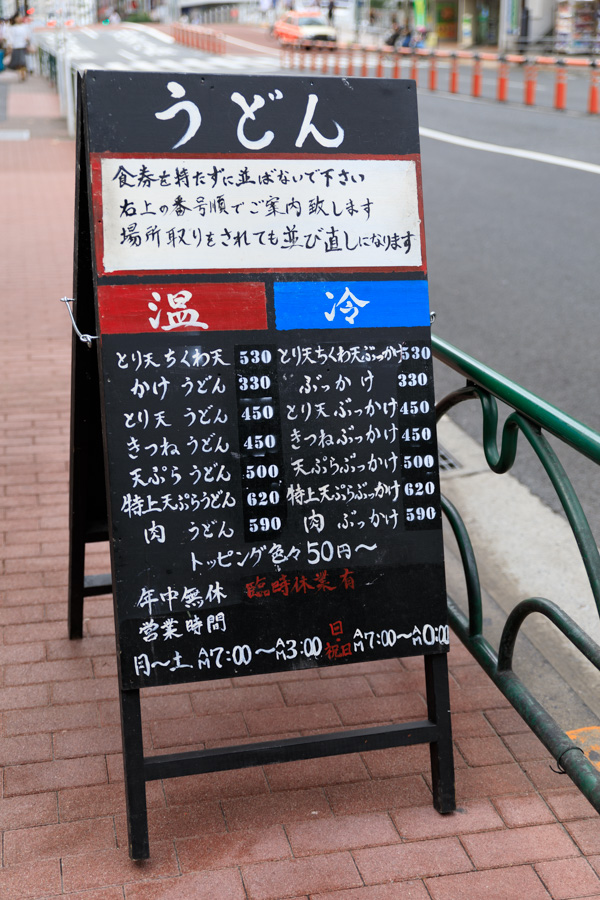 うどん
食券を持たずに並ばないで下さい
右上の番号順でご案内致します
場所取りをされても並び直しになります
温 冷
とり天ちくわ天 530 とり天ちくわ天ぶっかけ 530
かけうどん 330 ぶっかけ 330
とり天うどん 450 とり天ぶっかけ 450
きつねうどん 450 きつねぶっかけ 450
天ぷらうどん 500 天ぷらぶっかけ 500
特上天ぷらうどん 620 特上天ぷらぶっかけ 620
肉うどん 590 肉ぶっかけ 590
トッピング色々50円〜
年中無休 臨時休業有
営業時間
月〜土 AM7:00〜AM3:00 日・祝日 AM7:00〜AM0:00